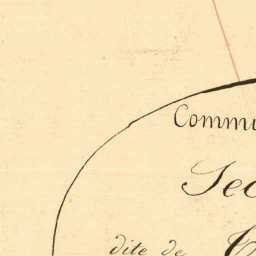 Commu
Sec
dite de C